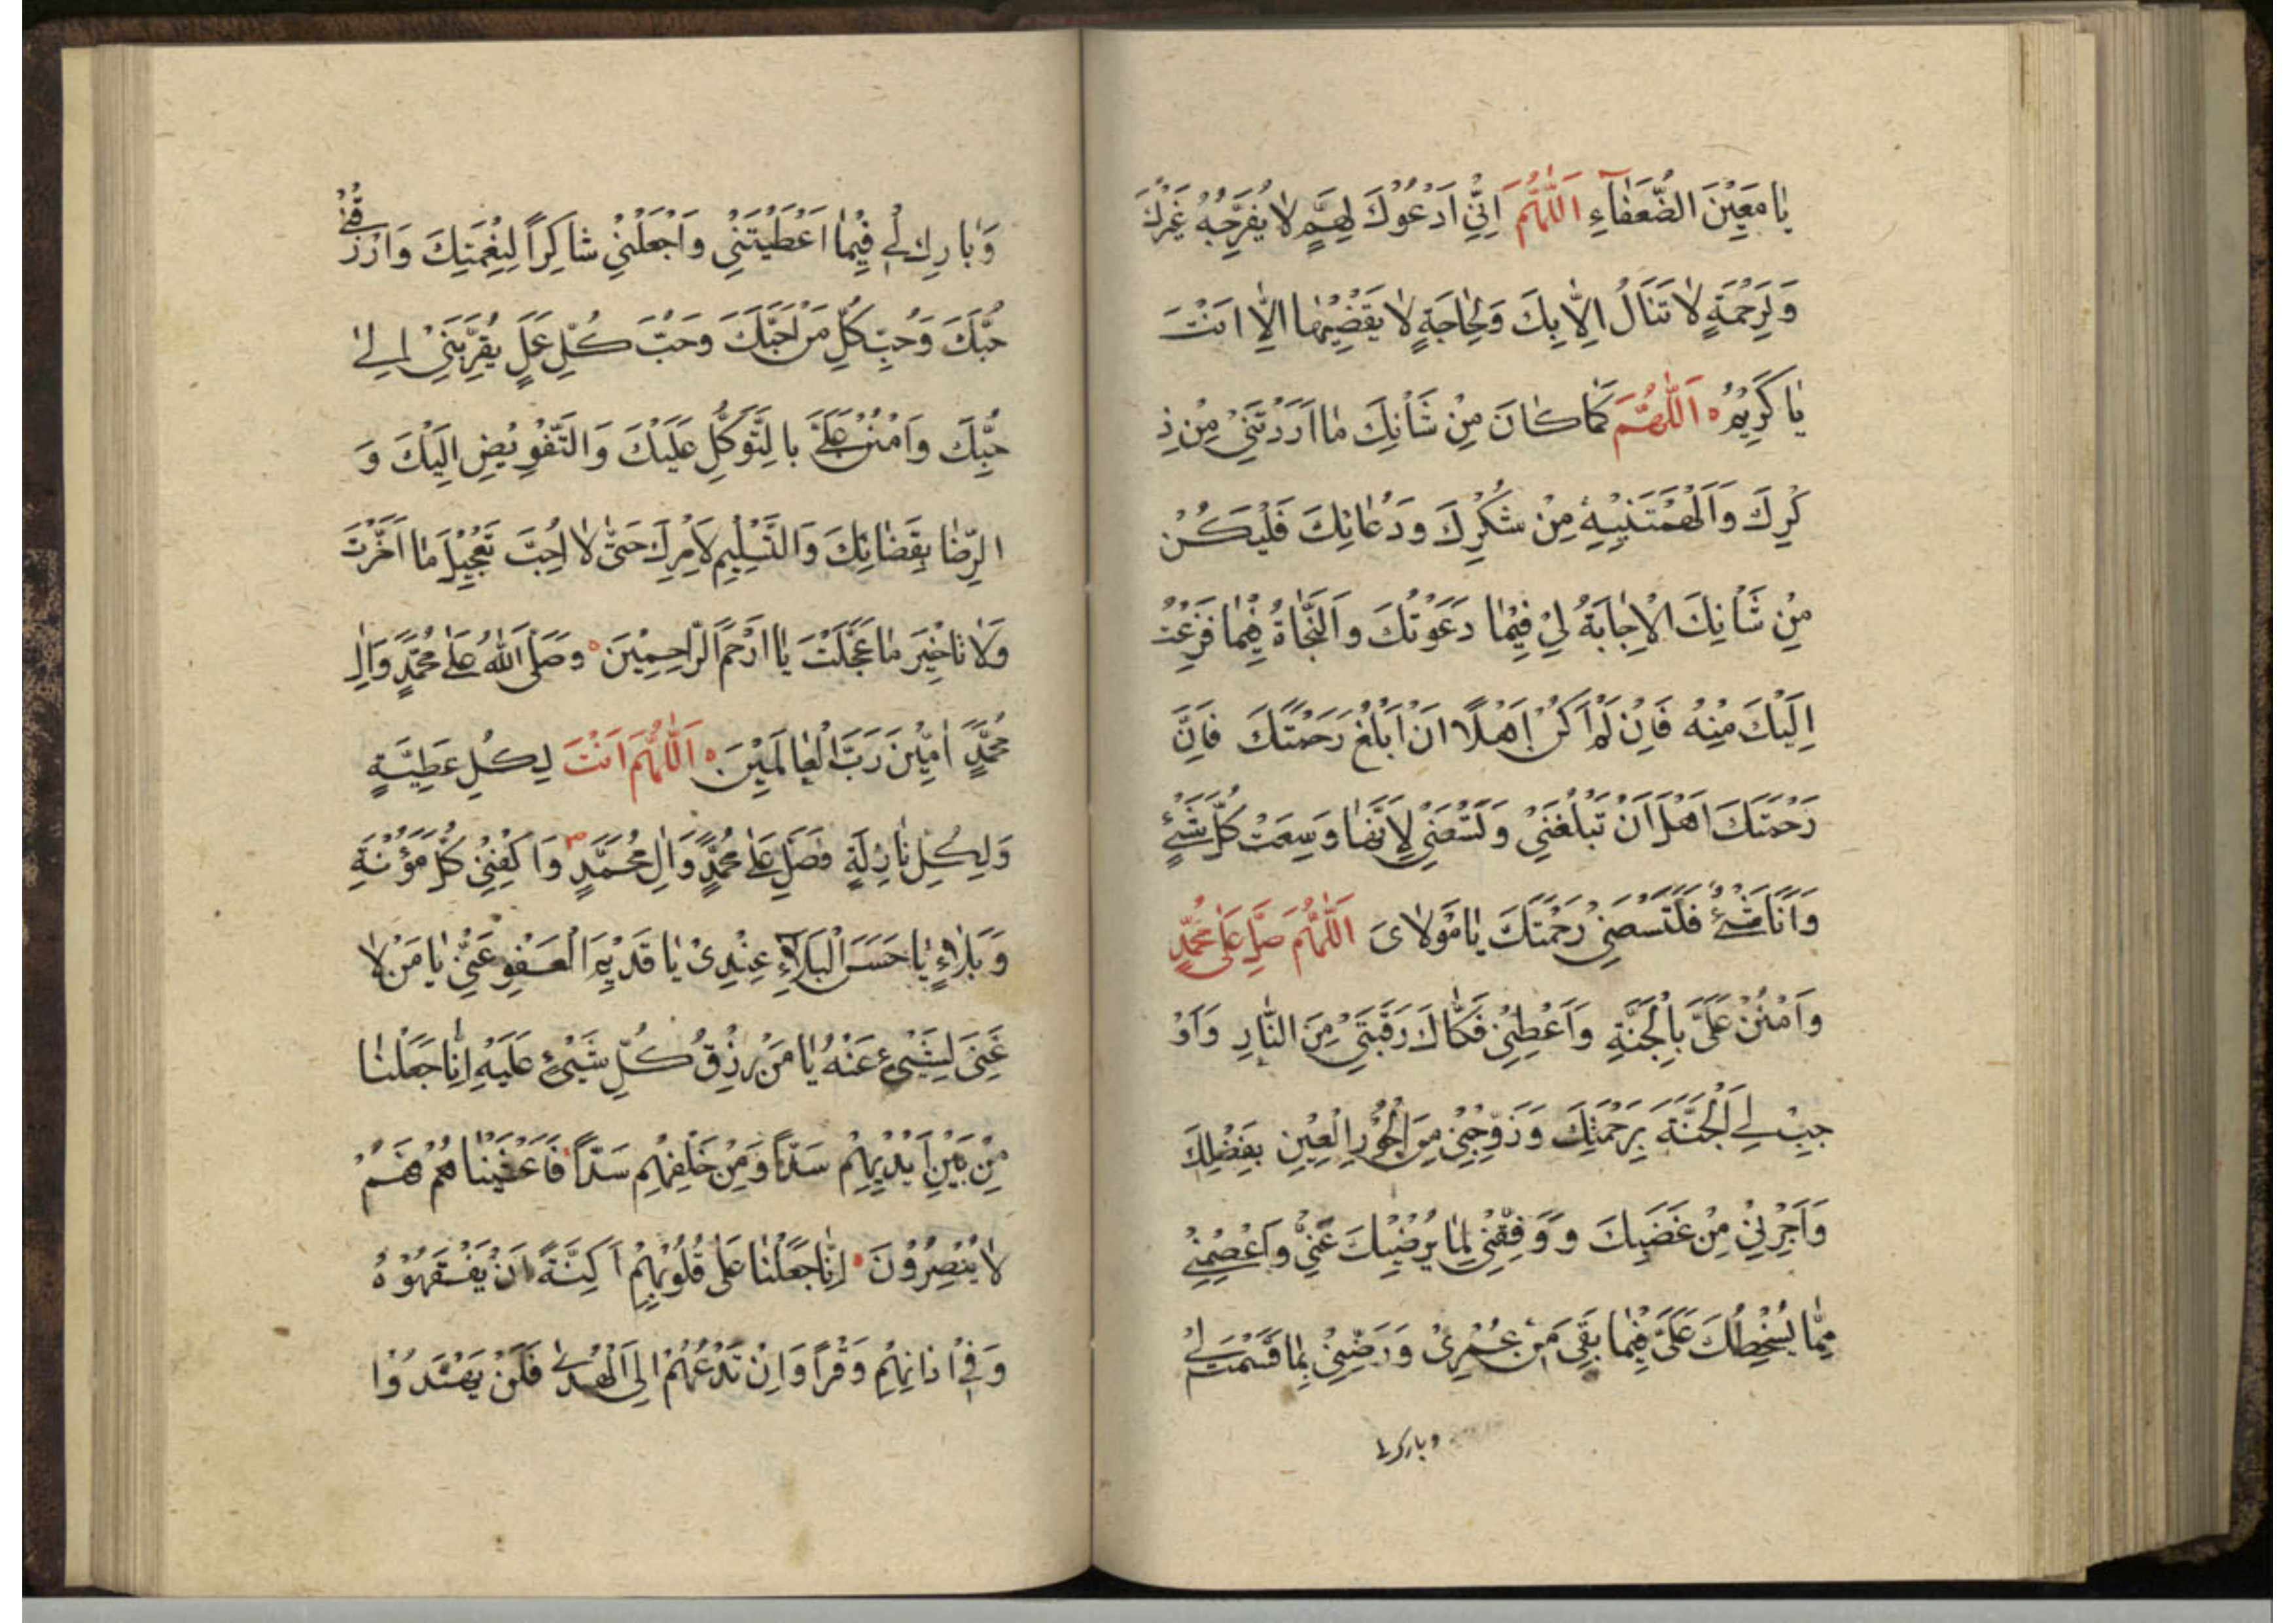 يٰا مَعِيْنَ الضُّعَفٰآءِ اَللّٰهُمَّ اِنّٖي اَدْعُوْكَ لِهَمٍّ لٰا يُفَرِّجُهُ غَيْرُكَ
وَلِرَحْمَةٍ لٰا تَنَالُ اِلّٰا بِكَ وَلِحٰاجَةٍ لٰا يَقْضِيْهٰا اِلّٰا اَنْتَ
يٰا كَرِيْمُ اَللّٰهُمَّ كَمٰا كٰانَ مِنْ شَأْنِكَ مٰا اَرَدْتَنِيْ مِنْ ذِ
كْرِكَ وَاَلْهَمْتَنِيْهِ مِنْ شُكْرِكَ وَدُعٰائِكَ فَلْيَكُنْ
مِنْ شَأْنِكَ الْاِجٰابَةُ لِيْ فِيْمٰا دَعَوْتُكَ وَالنَّجٰاةُ فِيْمٰا فَزِعْتُ
اِلَيْكَ مِنْهُ فَاِنْ لَمْ اَكُنْ اَهْلًا اَنْ اَبْلُغَ رَحْمَتَكَ فَاِنَّ
رَحْمَتَكَ اَهْلٌ اَنْ تَبْلُغَنِيْ وَلَتَسَعُنِيْ لِاَنَّهٰا وَسِعَتْ كُلَّ شَيْءٍ
وَاَنَا شَيْءٌ فَلْتَسَعْنِيْ رَحْمَتُكَ يٰا مَوْلٰايَ اَللّٰهُمَّ صَلِّ عَلٰى مُحَمَّدٍ
وَامْنُنْ عَلَيَّ بِالْجَنَّةِ وَاَعْطِنِيْ فَكٰاكَ رَقَبَتِيْ مِنَ النّٰارِ وَاَوْ
جِبْ لِيَ الْجَنَّةَ بِرَحْمَتِكَ وَزَوِّجْنِيْ مِنَ الْحُوْرِ الْعِيْنِ بِفَضْلِكَ
وَاَجِرْنِيْ مِنْ غَضَبِكَ وَوَفِّقْنِيْ لِمٰا يُرْضِيْكَ عَنِّيْ وَاعْصِمْنِيْ
مِمّٰا يُسْخِطُكَ عَلَيَّ فِيْمٰا بَقِيَ مِنْ عُمْرِيْ وَرَضِّنِيْ بِمٰا قَسَمْتَ لِيْ
وبارك لي
وَبٰارِكْ لِيْ فِيْمٰا اَعْطَيْتَنِيْ وَاجْعَلْنِيْ شٰاكِراً لِنِعْمَتِكَ وَارْزُقْنِيْ
حُبَّكَ وَحُبَّ كُلِّ مَنْ اَحَبَّكَ وَحُبَّ كُلِّ عَمَلٍ يُقَرِّبُنِيْ اِلٰى
حُبِّكَ وَامْنُنْ عَلَيَّ بِالتَّوَكُّلِ عَلَيْكَ وَالتَّفْوِيْضِ اِلَيْكَ وَ
الرِّضٰا بِقَضٰائِكَ وَالتَّسْلِيْمِ لِاَمْرِكَ حَتّٰى لٰا اُحِبَّ تَعْجِيْلَ مٰا اَخَّرْتَ
وَلٰا تٰاخِيْرَ مٰا عَجَّلْتَ يٰا اَرْحَمَ الرّٰاحِمِيْنَ وَصَلَّى اللّٰهُ عَلٰى مُحَمَّدٍ وَاٰلِ
مُحَمَّدٍ اٰمِيْنَ رَبَّ الْعٰالَمِيْنَ اَللّٰهُمَّ اَنْتَ لِكُلِّ عَطِيَّةٍ
وَلِكُلِّ نٰازِلَةٍ فَصَلِّ عَلٰى مُحَمَّدٍ وَاٰلِ مُحَمَّدٍ وَاكْفِنِيْ كُلَّ مَؤُنَةٍ
وَبَلٰاءٍ يٰا حَسَنَ الْبَلٰاءِ عِنْدِيْ يٰا قَدِيْمَ الْعَفْوِ عَنِّيْ يٰا مَنْ لٰا
غِنَى لِشَيْءٍ عَنْهُ يٰا مَنْ رِزْقُ كُلِّ شَيْءٍ عَلَيْهِ اِنّٰا جَعَلْنٰا
مِنْ بَيْنِ اَيْدِيْهِمْ سَدّاً وَمِنْ خَلْفِهِمْ سَدّاً فَاَغْشَيْنٰاهُمْ فَهُمْ
لٰا يُبْصِرُوْنَ اِنّٰا جَعَلْنٰا عَلٰى قُلُوْبِهِمْ اَكِنَّةً اَنْ يَفْقَهُوْهُ
وَفِيْ اٰذٰانِهِمْ وَقْراً وَاِنْ تَدْعُهُمْ اِلَى الْهُدٰى فَلَنْ يَهْتَدُوْا